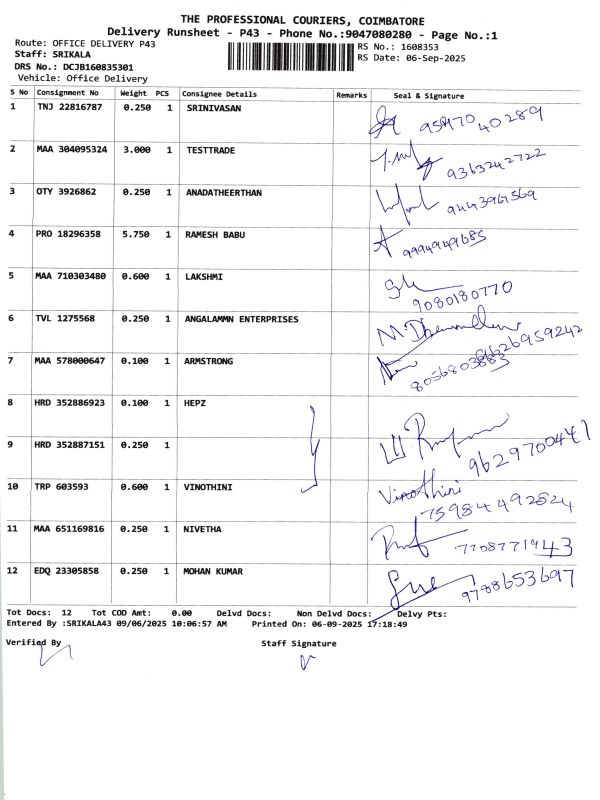 THE PROFESSIONAL COURIERS, COIMBATORE
Delivery Runsheet - P43 - Phone No.:9047080280 - Page No.:1
Route: OFFICE DELIVERY P43
Staff: SRIKALA
DRS No.: DCJB160835301
Vehicle: Office Delivery
RS No.: 1608353
RS Date: 06-Sep-2025
S No Consignment No Weight PCS Consignee Details Remarks Seal & Signature
1 TNJ 22816787 0.250 1 SRINIVASAN
2 MAA 304095324 3.000 1 TESTTRADE 9363242722
3 OTY 3926862 0.250 1 ANADATHEERTHAN
4 PRO 18296358 5.750 1 RAMESH BABU 9994949685
5 MAA 710303480 0.600 1 LAKSHMI 9080180770
6 TVL 1275568 0.250 1 ANGALAMMN ENTERPRISES
7 MAA 578000647 0.100 1 ARMSTRONG
8 HRD 352886923 0.100 1 HEPZ
9 HRD 352887151 0.250 1 9629700441
10 TRP 603593 0.600 1 VINOTHINI Vinothini
11 MAA 651169816 0.250 1 NIVETHA
12 EDQ 23305858 0.250 1 MOHAN KUMAR 9788653697
Tot Docs: 12 Tot COD Amt: 0.00 Delvd Docs: Non Delvd Docs: Delvy Pts:
Entered By :SRIKALA43 09/06/2025 10:06:57 AM Printed On: 06-09-2025 17:18:49
Verified By Staff Signature